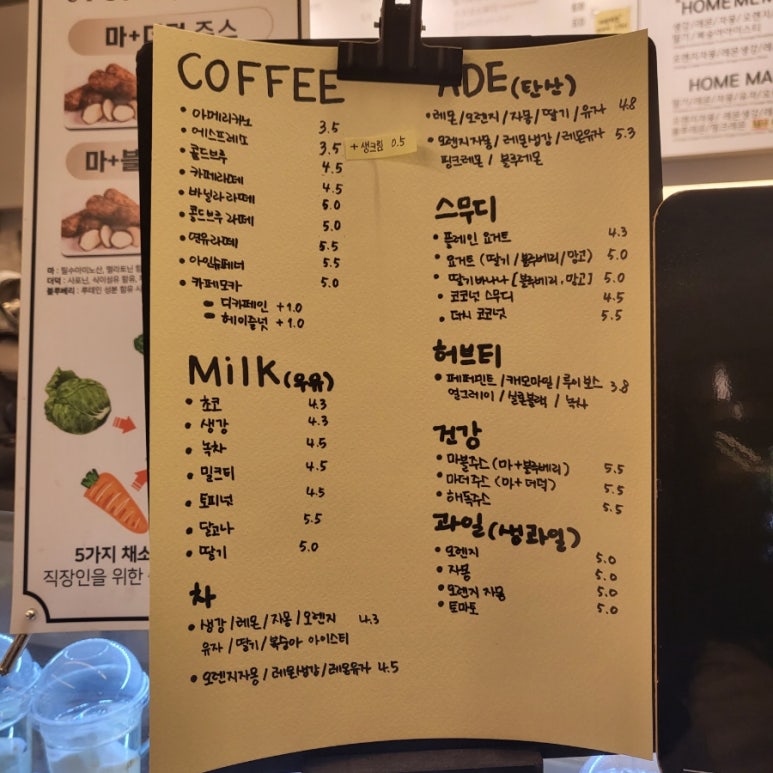 COFFEE
• 아메리카노 3.5
• 에스프레소 3.5
+ 생크림 0.5
• 콜드브루 4.5
• 카페라떼 4.5
• 바닐라 라떼 5.0
• 콜드브루 라떼 5.0
• 연유라떼 5.5
• 아인슈페너 5.5
• 카페모카 5.0
- 디카페인 +1.0
- 헤이즐넛 +1.0
Milk (우유)
• 초코 4.3
• 생강 4.3
• 녹차 4.5
• 밀크티 4.5
• 토피넛 4.5
• 달고나 5.5
• 딸기 5.0
차
• 생강/레몬/자몽/오렌지 4.3
유자/딸기/복숭아 아이스티
• 오렌지자몽/레몬생강/레몬유자 4.5
ADE (탄산)
• 레몬/오렌지/자몽/딸기/유자 4.8
• 오렌지자몽/레몬생강/레몬유자 5.3
핑크레몬/블루레몬
스무디
• 플레인 요거트 4.3
• 요거트 (딸기/블루베리/망고) 5.0
• 딸기바나나 [블루베리, 망고] 5.0
• 코코넛 스무디 4.5
• 더치 코코넛 5.5
허브티
• 페퍼민트/캐모마일/루이보스 3.8
얼그레이/실론블랙/녹차
건강
• 마블주스 (마+블루베리) 5.5
• 마더주스 (마+더덕) 5.5
• 해독주스 5.5
과일 (생과일)
• 오렌지 5.0
• 자몽 5.0
• 오렌지 자몽 5.0
• 토마토 5.0
마+더덕 주스
마+블
마 : 필수아미노산, 멜라토닌 함
더덕 : 사포닌, 식이섬유 함유,
블루베리 : 루테인 성분 함유
5가지 채소
직장인을 위한
HOME MA